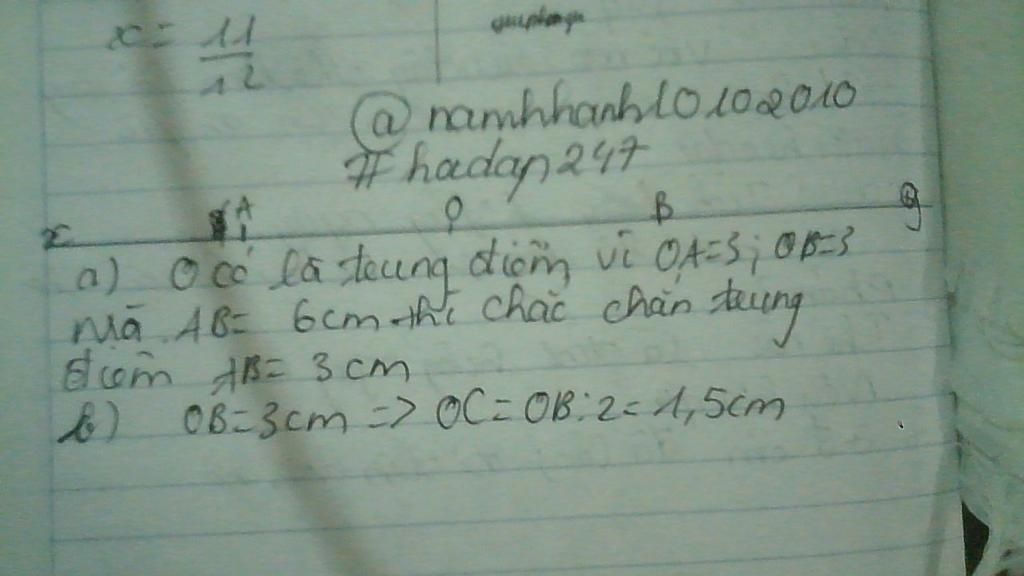 x = 11/12
@namhhanh10102010
#hadap247
x A O B y
a) O có là trung điểm vì OA=3; OB=3
mà AB= 6cm thì chắc chắn trung
điểm AB= 3cm
b) OB=3cm => OC=OB:2=1,5cm